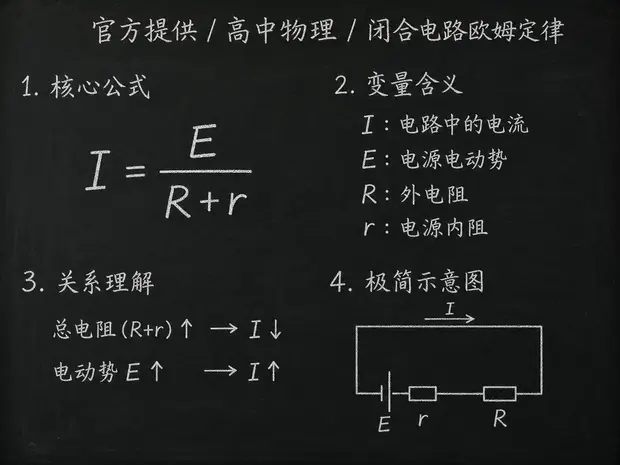 官方提供 / 高中物理 / 闭合电路欧姆定律
1. 核心公式
I = E / (R+r)
2. 变量含义
I：电路中的电流
E：电源电动势
R：外电阻
r：电源内阻
3. 关系理解
总电阻(R+r)↑ → I↓
电动势 E↑ → I↑
4. 极简示意图
I
E r R